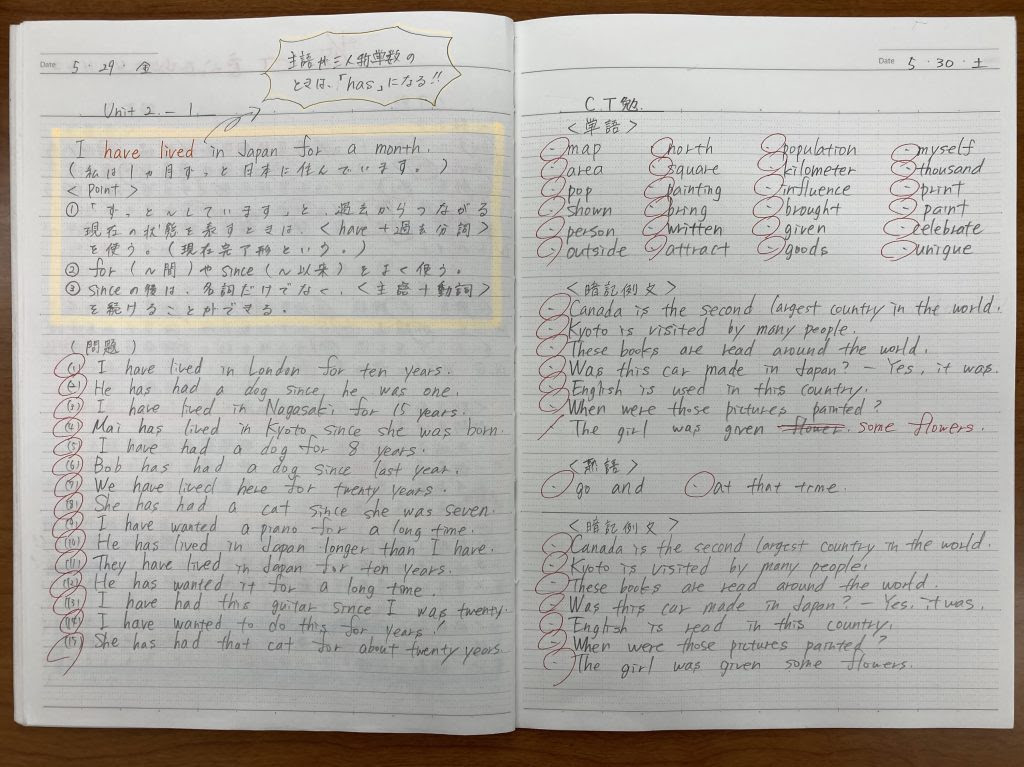 Date 5・29・金
主語が三人称単数の
ときは、「has」になる!!
Unit 2 - 1.
I have lived in Japan for a month.
(私は1ヵ月ずっと日本に住んでいます。)
<Point>
① 「ずっと～しています」と、過去からつながる
現在の状態を表すときは、<have+過去分詞>
を使う。(現在完了形という。)
② for(～間)やsince(～以来)をよく使う。
③ sinceの後は、名詞だけでなく、<主語+動詞>
を続けることができる。
(問題)
(1) I have lived in London for ten years.
(2) He has had a dog since he was one.
(3) I have lived in Nagasaki for 15 years.
(4) Mai has lived in Kyoto since she was born.
(5) I have had a dog for 8 years.
(6) Bob has had a dog since last year.
(7) We have lived here for twenty years.
(8) She has had a cat since she was seven.
(9) I have wanted a piano for a long time.
(10) He has lived in Japan longer than I have.
(11) They have lived in Japan for ten years.
(12) He has wanted it for a long time.
(13) I have had this guitar since I was twenty.
(14) I have wanted to do this for years!
(15) She has had that cat for about twenty years
Date 5・30・土
C.T勉.
<単語>
・map ・north ・population ・myself
・area ・square ・kilometer ・thousand
・pop ・painting ・influence ・print
・shown ・bring ・brought ・paint
・person ・written ・given ・celebrate
・outside ・attract ・goods ・unique
<暗記例文>
・Canada is the second largest country in the world.
・Kyoto is visited by many people.
・These books are read around the world.
・Was this car made in Japan? - Yes, it was.
・English is used in this country.
・When were those pictures painted?
The girl was given flower. some flowers.
<熟語>
・go and ・at that time.
<暗記例文>
・Canada is the second largest country in the world.
・Kyoto is visited by many people.
・These books are read around the world.
・Was this car made in Japan? - Yes, it was.
・English is read in this country.
・When were those pictures painted?
・The girl was given some flowers.